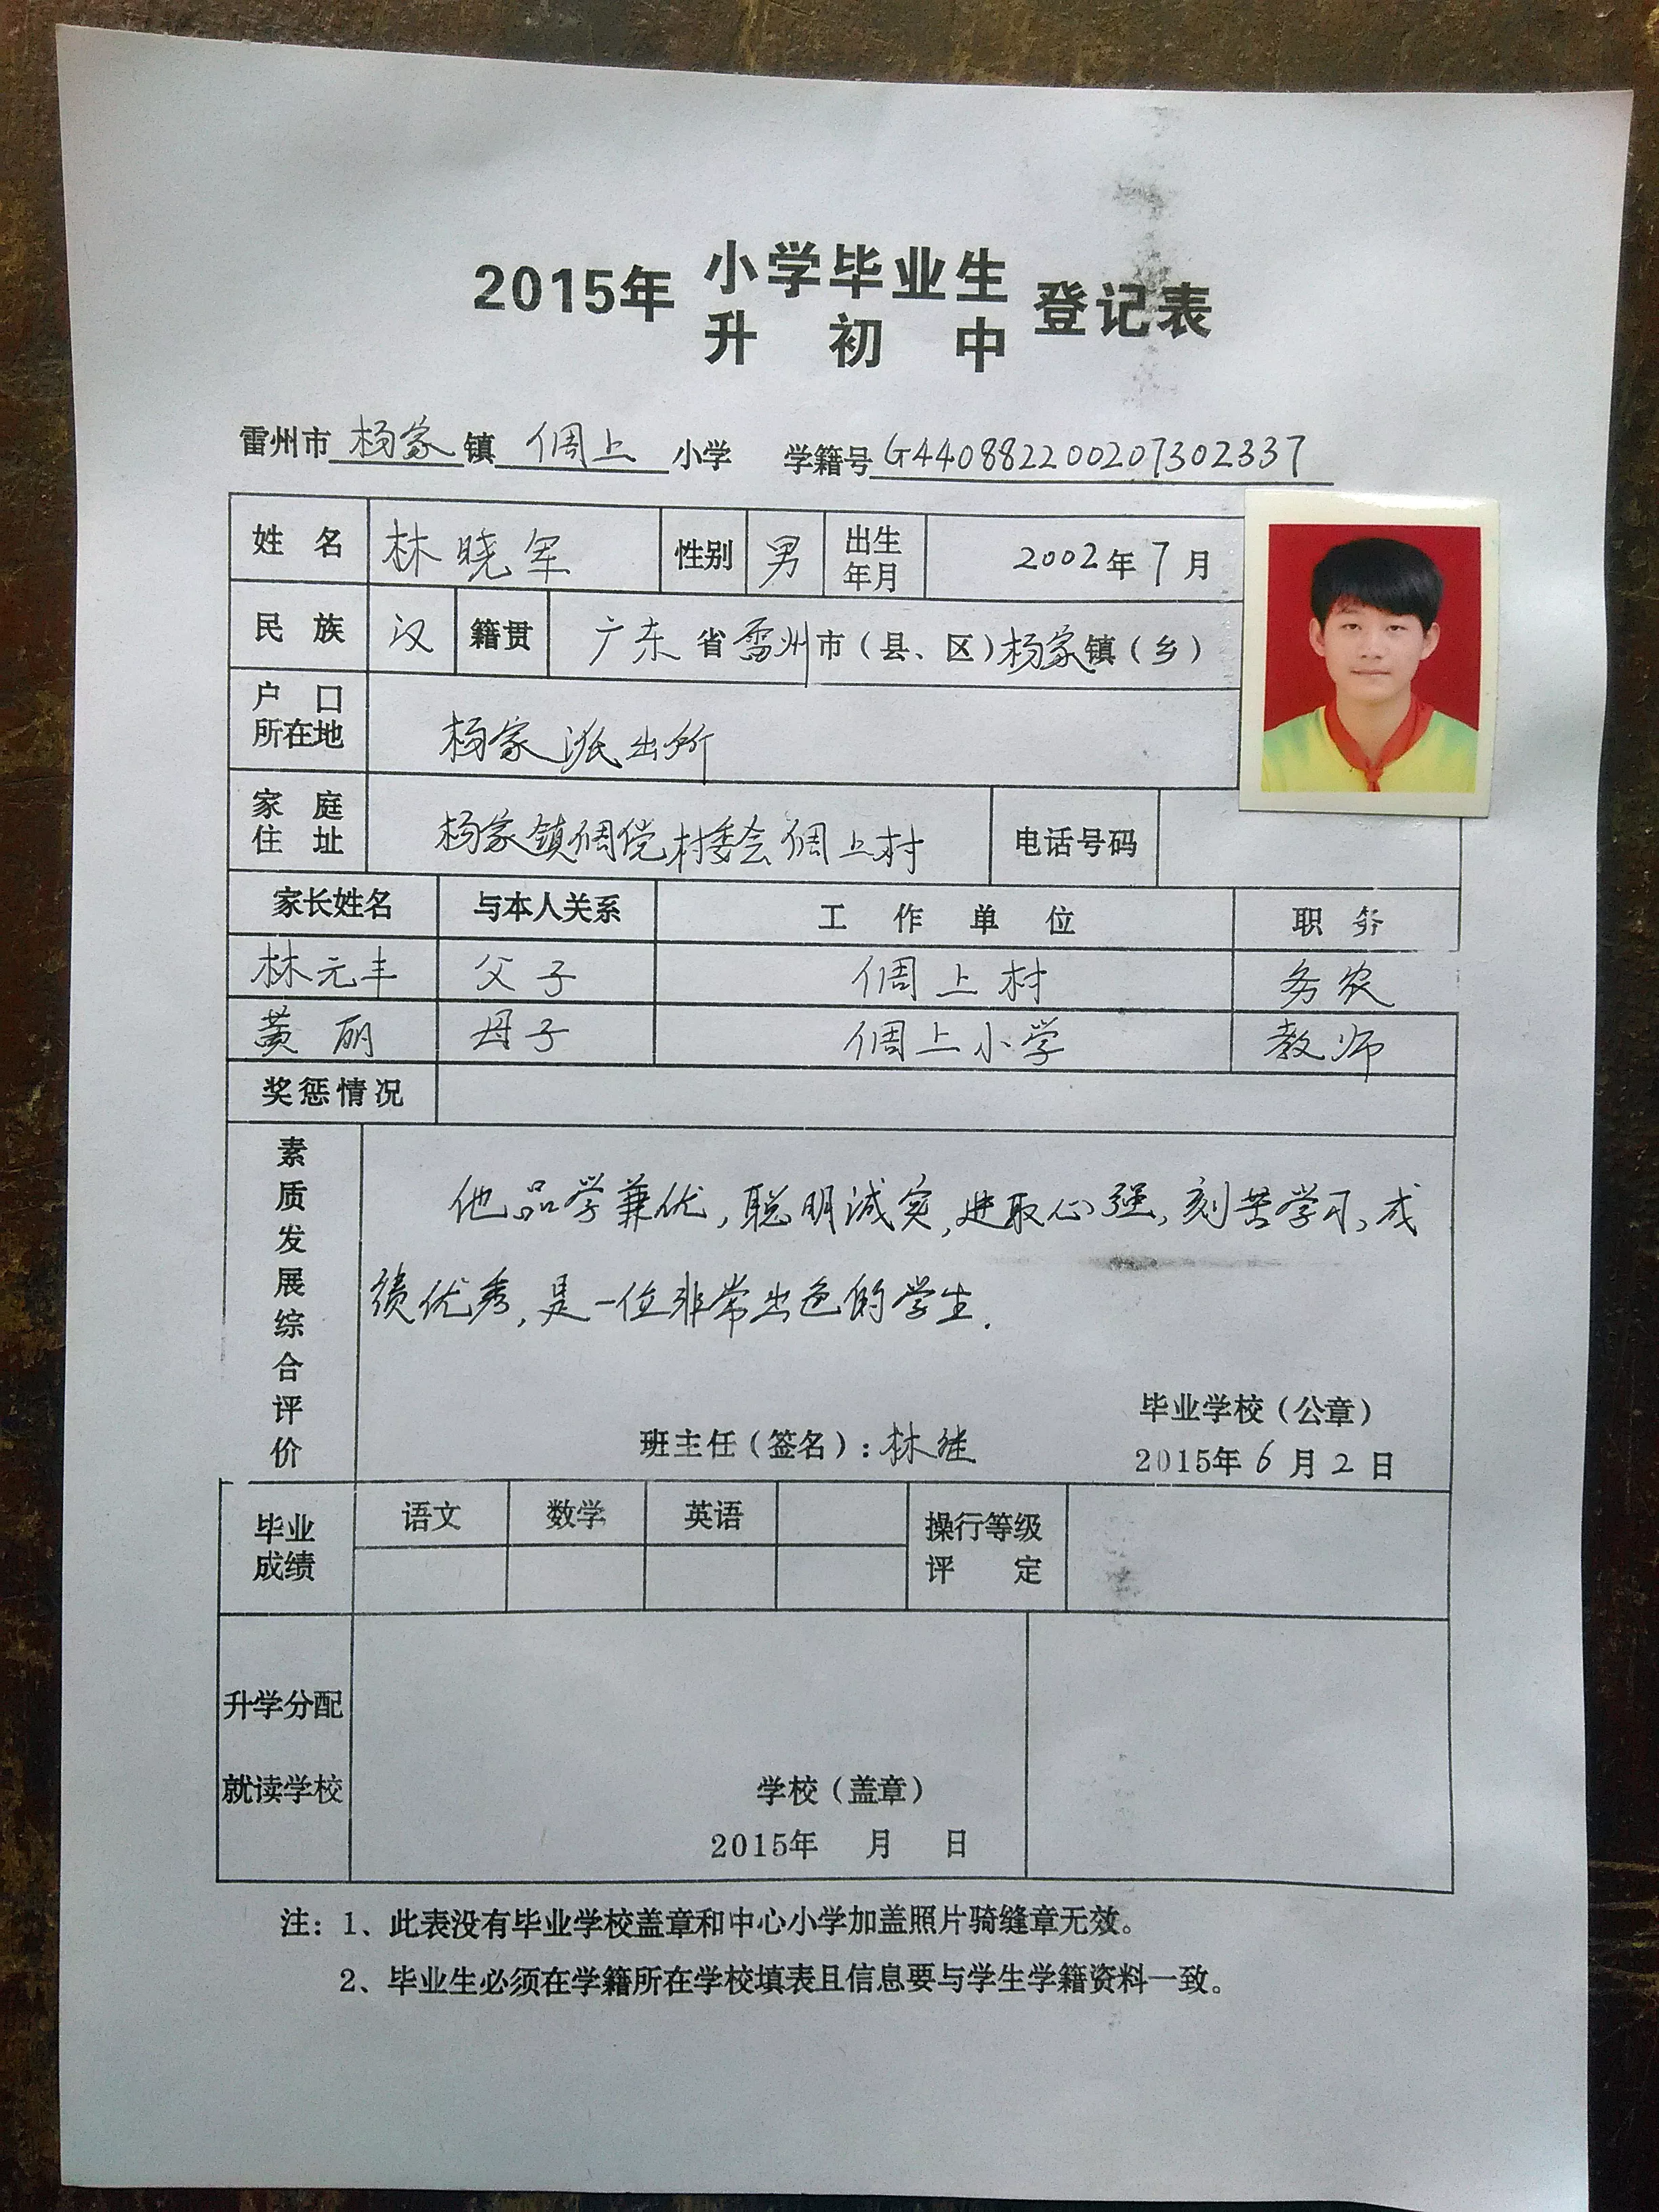 2015年 小学毕业生 登记表
升 初 中
雷州市 杨家 镇 倜上 小学 学籍号 G440882200207302337
姓 名 林晓军 性别 男 出生年月 2002年7月
民 族 汉 籍贯 广东省雷州市（县、区）杨家镇（乡）
户 口
所在地 杨家派出所
家 庭
住 址 杨家镇倜傥村委会倜上村 电话号码
家长姓名 与本人关系 工 作 单 位 职 务
林元丰 父子 倜上村 务农
黄丽 母子 倜上小学 教师
奖惩情况
素质发展综合评价
他品学兼优,聪明诚实,进取心强,刻苦学习,成
绩优秀,是一位非常出色的学生.
毕业学校（公章）
班主任（签名）：林继
2015年6月2日
毕业
成绩 语文 数学 英语 操行等级
评 定
升学分配
就读学校
学校（盖章）
2015年 月 日
注：1、此表没有毕业学校盖章和中心小学加盖照片骑缝章无效。
2、毕业生必须在学籍所在学校填表且信息要与学生学籍资料一致。